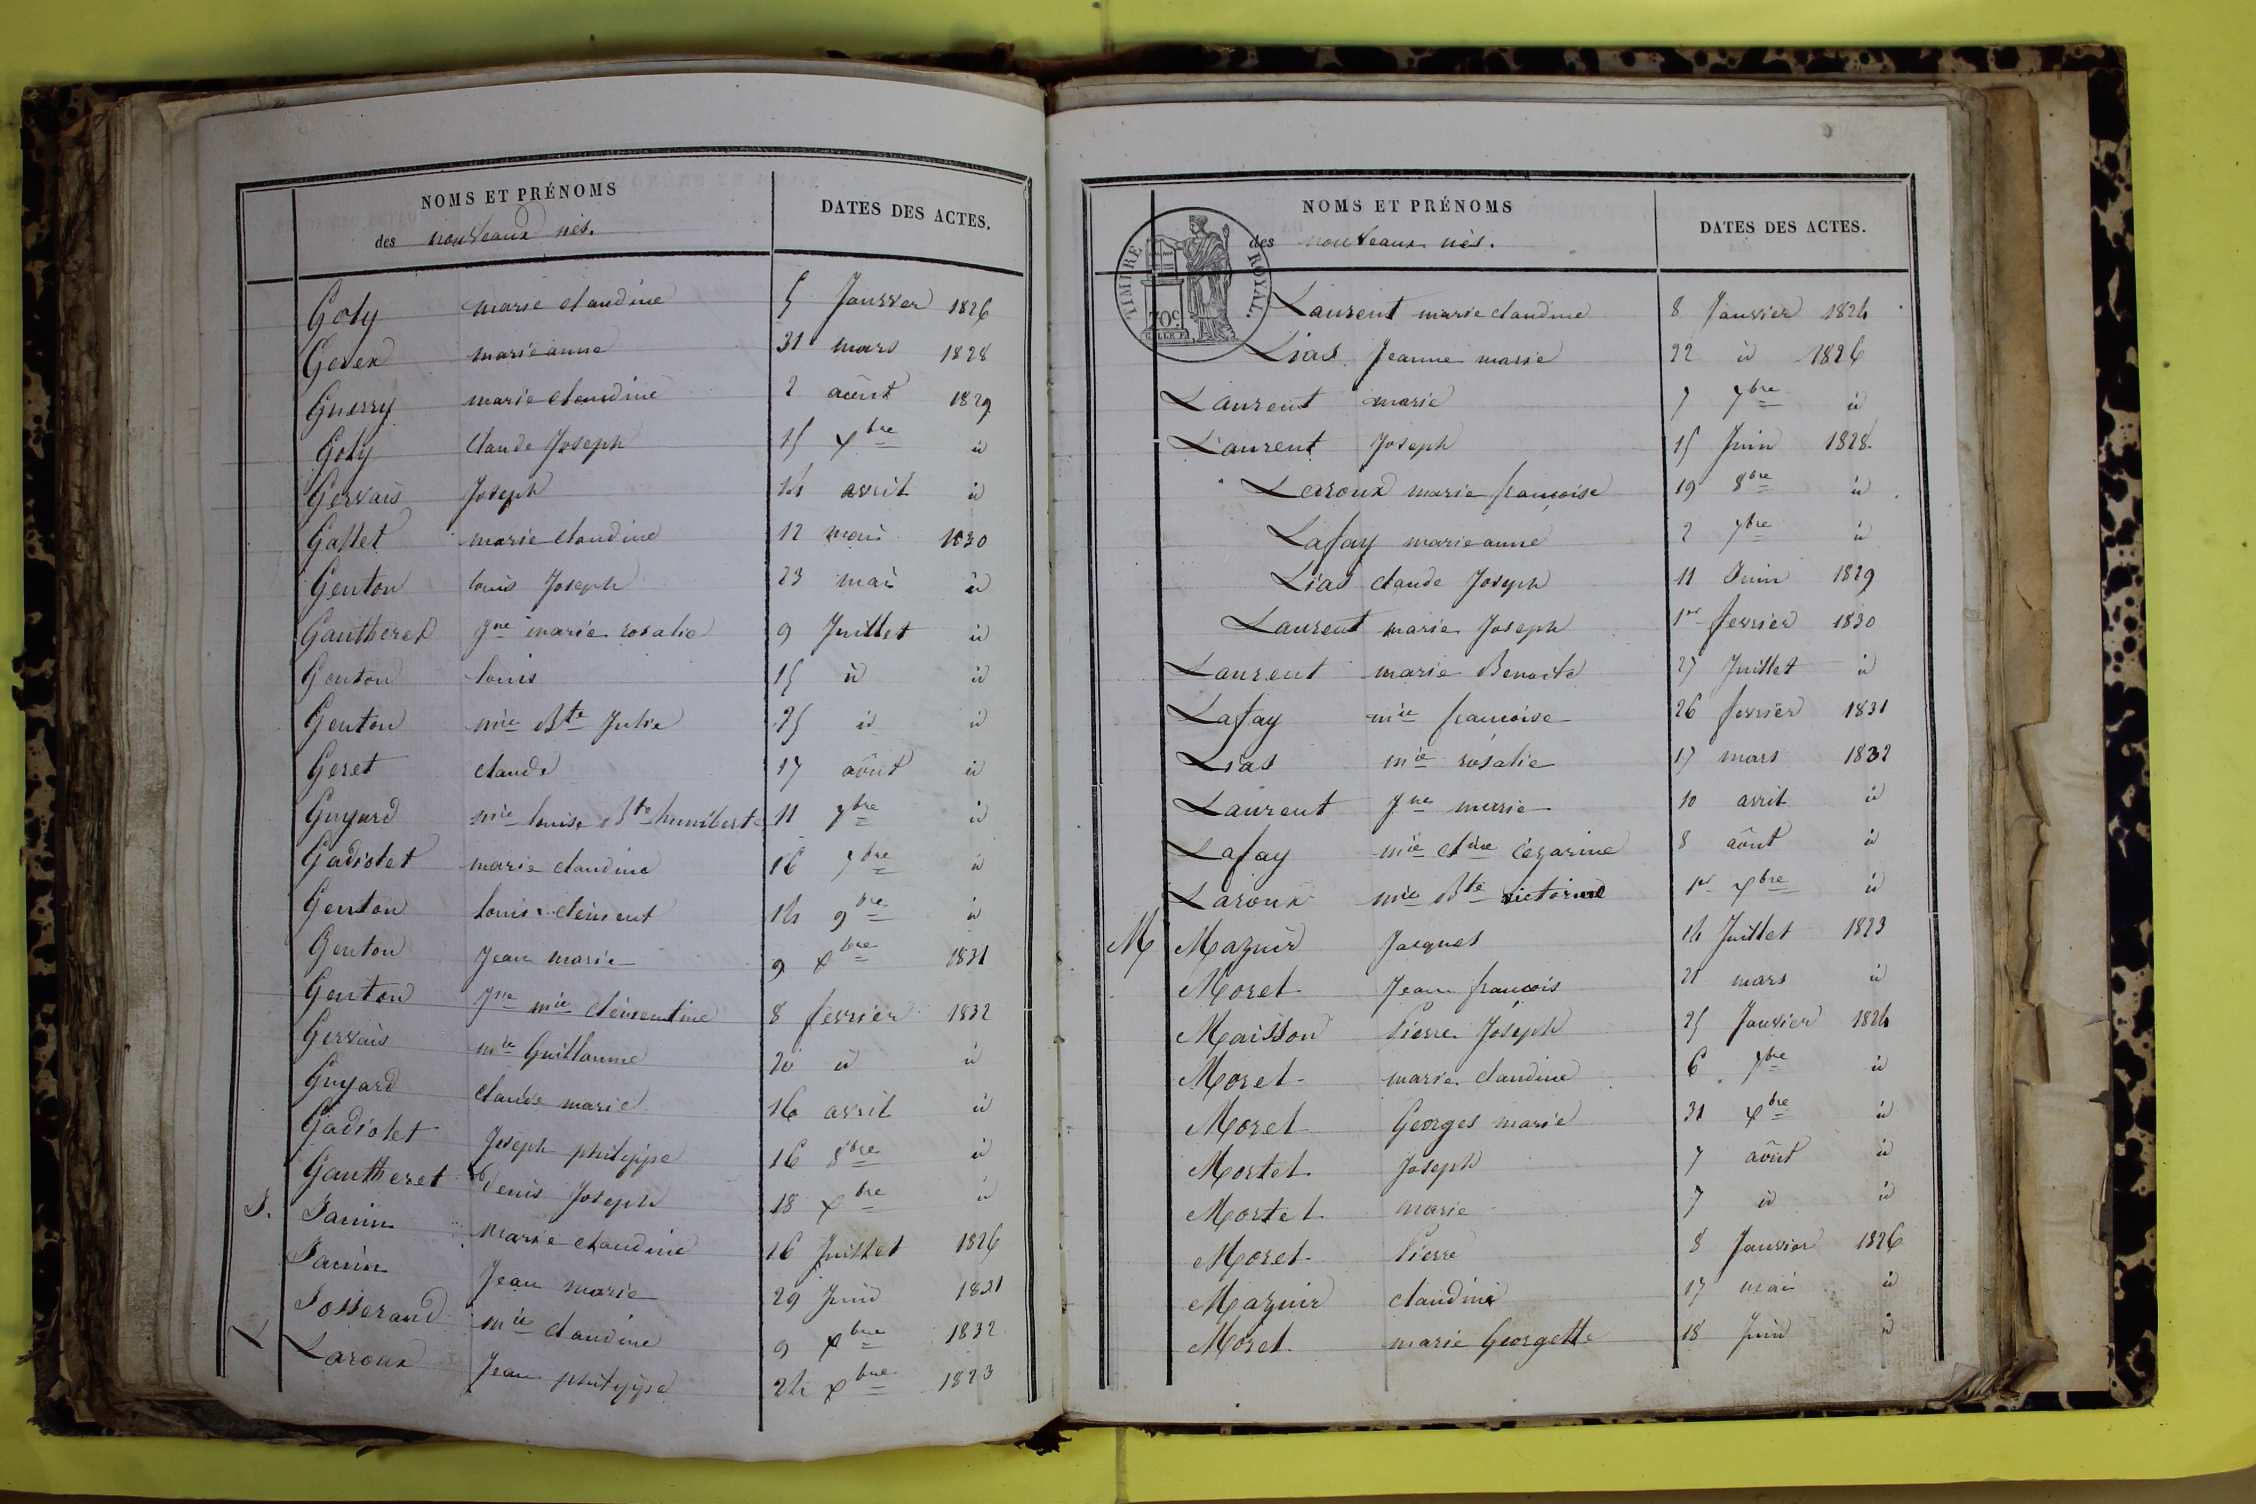 NOMS ET PRÉNOMS DATES DES ACTES.
des nouveaux nés.
Goly marie claudine 5 Janvier 1826
Gerex marie anne 31 mars 1828
Guerry marie claudine 2 août 1829
Goly claude Joseph 15 xbre id
Gervais Joseph 14 avril id
Gallet marie claudine 12 mai 1830
Genton louis Joseph 23 mai id
Gautheret Jne marie rosalie 9 Juillet id
Genton louis 15 id id
Genton mie Bte Julie 25 id id
Geret claude 17 août id
Guyard mie louise Bte humberte 11 7bre id
Gadiolet marie claudine 16 7bre id
Genton louis clément 14 9bre id
Genton Jean marie 9 xbre 1831
Genton Jne mie clémentine 8 fevrier 1832
Gervais mie Guillaume 20 id id
Guyard claude marie 16 avril id
Gadiolet Joseph philippe 16 8bre id
Gautheret denis Joseph 18 xbre id
J. Janin marie claudine 16 Juillet 1826
Janin Jean marie 29 Juin 1831
Josserand mie claudine 9 xbre 1832
L Laroux Jean philippe 24 xbre 1823
NOMS ET PRÉNOMS DATES DES ACTES.
des nouveaux nés.
TIMBRE ROYAL.
70c
Laurent marie claudine 8 Janvier 1824
Lias Jeanne marie 22 id 1826
Laurent marie 7 7bre id
Laurent Joseph 15 Juin 1828
Laroux marie françoise 19 8bre id
Lafay marie anne 2 7bre id
Lias claude Joseph 11 Juin 1829
Laurent marie Joseph 1er fevrier 1830
Laurent marie Benoite 27 Juillet id
Lafay mie françoise 26 fevrier 1831
Lias mie rosalie 17 mars 1832
Laurent Jne marie 10 avril id
Lafay mie cldine cézarine 8 août id
Laroux mie Bte victorine 1er xbre id
M Mazuir Jacques 14 Juillet 1823
Morel Jean françois 21 mars id
Maisson Pierre Joseph 25 Janvier 1824
Morel marie claudine 6 7bre id
Morel Georges marie 31 xbre id
Mortel Joseph 7 août id
Mortel marie 7 id id
Morel Pierre 8 Janvier 1826
Mazuir claudine 17 mai id
Morel marie Georgette 18 Juin id